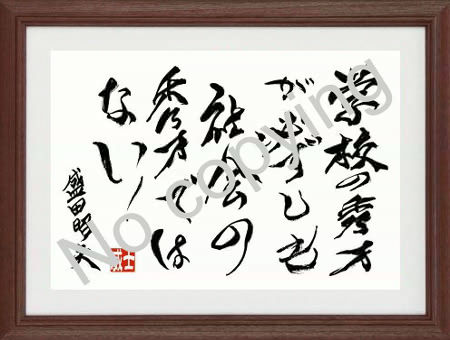 学校の秀才
が必ずしも
社会の
秀才では
ない!
盛田昭夫
No copying